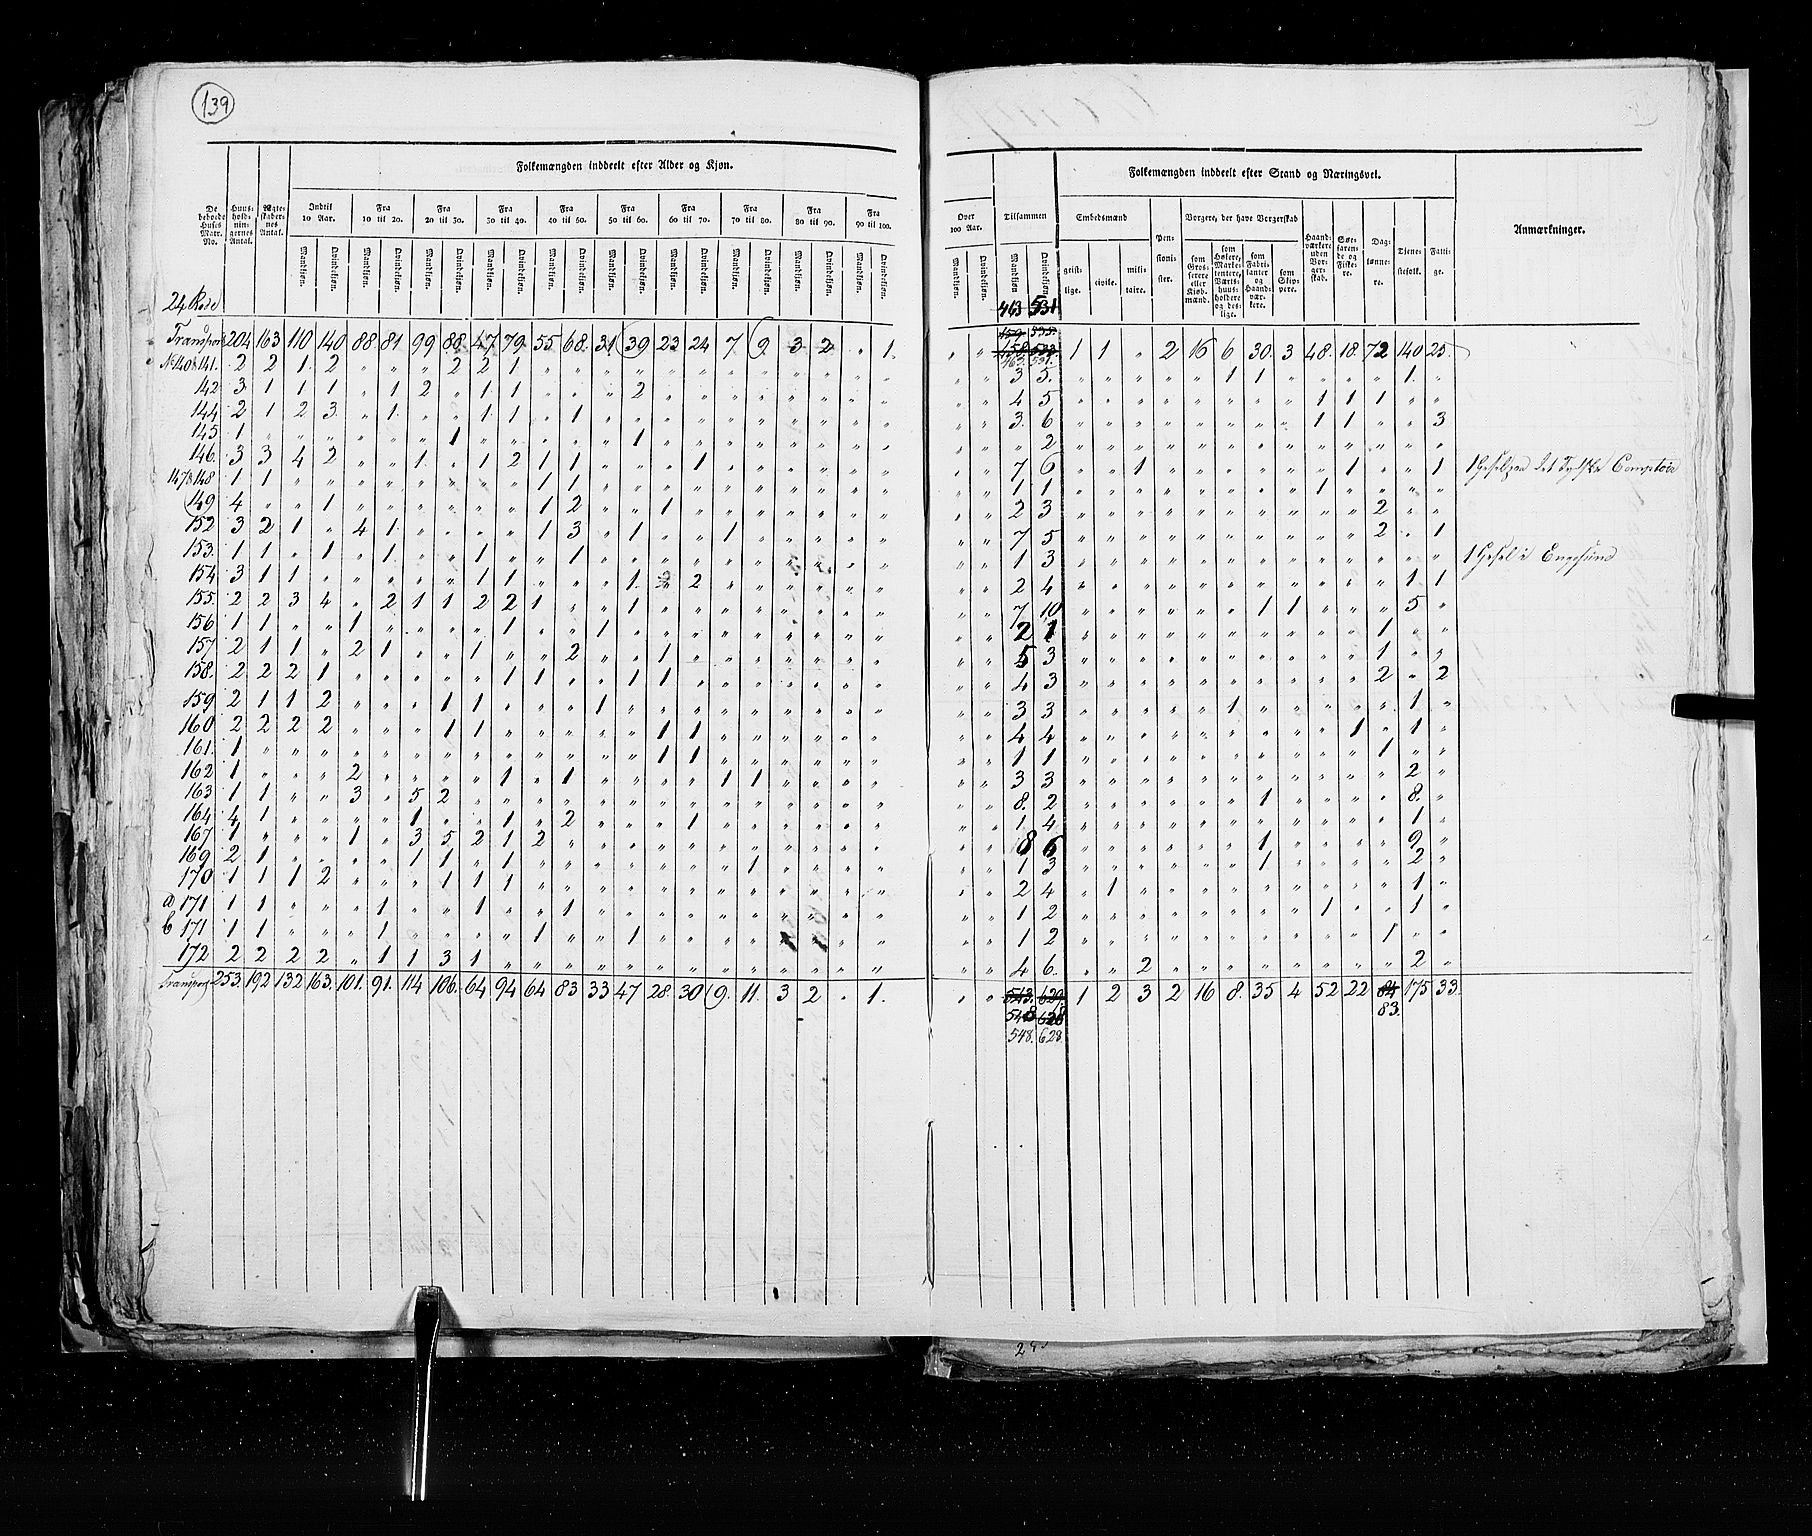 139
Folkemængden inddeelt efter Alder og Kjøn.
Folkemængden inddeelt efter Stand og Næringsvei.
De beboede Huses Matr. No.
Huus-hold-nin-gernes Antal.
Ægte-skaber-nes Antal.
Indtil 10 Aar. Fra 10 til 20. Fra 20 til 30. Fra 30 til 40. Fra 40 til 50. Fra 50 til 60. Fra 60 til 70. Fra 70 til 80. Fra 80 til 90. Fra 90 til 100.
Over 100 Aar. Tilsammen Embedsmænd Pen-sioni-ster. Borgere, der have Borgerskab Haand-værkere uden Bor-ger-skab. Søe-faren-de og Fiske-re. Dag-lønne-re. Tjene-stefolk. Fatti-ge. Anmærkninger.
Mandkjøn. Qvindekjøn. Mandkjøn. Qvindekjøn. Mandkjøn. Qvindekjøn. Mandkjøn. Qvindekjøn. Mandkjøn. Qvindekjøn. Mandkjøn. Qvindekjøn. Mandkjøn. Qvindekjøn. Mandkjøn. Qvindekjøn. Mandkjøn. Qvindekjøn. Mandkjøn. Qvindekjøn.
Mandkjøn. Qvindekjøn. Mandkjøn Qvindekjøn. geist-lige. civile. mili-taire. som Gros-serere eller Kjøb-mænd. som Høkere, Marke-tentere, Værts-huus-holdere og des-lige. som Fabri-kanter og Haand-vær-kere. som Skip-pere.
24 Rode
463 531
Transport 204 163 110 140 88 81 99 88 47 79 55 68 31 39 23 24 7 9 3 2 " 1. " " 463. 531. 1 1 " 2 16 6 30. 3 48. 18. 72 140 25.
No 140 & 141. 2 2 1. 2 " " " 2 2 1 " " " " " " " " " " " " " " 3 5. " " " " " 1 1 " " " " 1. "
142 3 1 1 1 " 1 2 " 1 1 " " " 2 " " " " " " " " " " 4 5 " " " " " " " " 1 1 1 " "
144 2 1 2 3. " 1. " " 1. 1 " 1 " " " " " " " " " " " " 3. 6 " " " " " " " " 1 1 " " 3
145 1 " " " " " " 1 " " " " " 1 " " " " " " " " " " " 2 " " " " " " " " " " " " "
146. 3 3 4 2 " " 1. " 1 2 1 1 " " " 1 " " " " " " " " 7 6 " " 1 " " " " " " 1 " " 1
147 & 148 1 1 " " " " " " " " 1 1 " " " " " " " " " " " " 1 1 " " " " " " " " 1 " " " "
149 4 " " 1 " " " " " " 1 2 " " 1 " " " " " " " " " 2 3 " " " " " " " " " " 2 " "
152 3 2 1 " 4 1 " " " " 1 3 " 1 " " 1 " " " " " " " 7 5 " " " " " " " " " " 2 " 1
153. 1 1 " 1 " 1 " " 1 " " 1 " " " " " " " " " " " " 1 3 " " " " " " " " " " " " "
1 Gesel i Engesund
154 3 1 1 " " " " " 1 1 " " " 1. " 2 " " " " " " " " 2 4 " " " " " " " " " " " 1 1
155. 2 2 3 4 " 2 1 1 2 2 1 " " 1 " " " " " " " " " " 7 10 " " " " " " 1 1 " " " 5 "
156 1 1 " " 1 " " " " 1 " " 1 " " " " " " " " " " " 2 1 " " " " " " " " " " 1 " "
157 2 1 1 " 2 1 " " 1 " " 2 " " 1 " " " " " " " " " 5 3 " " " " " " " " " " 1 " "
158. 2 2 2 1 " " " " " 1 1 " " 1 1 " " " " " " " " " 4 3 " " " " " " " " " " 2 " 2
159 2 1 1 2 " " " 1 1 " " " 1 " " " " " " " " " " " 3 3 " " " " " 1 " " " " " 1 "
160 2 2 2 2 " " " 1 1 " " " " " 1 1 " " " " " " " " 4 4 " " " " " " " " " 1 " 1 "
161. 1 " " " " " " " " " " " " " 1 1 " " " " " " " " 1 1 " " " " " " " " " " 1 " "
162 1 " " " 2 " " " " 1 " 1 " " " " 1 1 " " " " " " 3 3 " " " " " " " " " " " 2 "
163 1 1 " " 3 " 5 2 " " " " " " " " " " " " " " " " 8. 2 " " " " " " 1 " " " " 8. "
164 4 1 " " " " 1 " " 1 " 2 " " " 1 " " " " " " " " 1 4 " " " " " " " " " " " 1 "
167 1 " " " 1 " 3 5 2 1 2 " " " " " " " " " " " " " 8 6 " " " " " " 1 " " " " 9 "
169 2 1 " " " " 1 1 " 1 " " " " " " " 1 " " " " " " 1 3 " " " " " " 1 " " " " 2 "
170 1 1 1 2 " " " 1 1 1 " " " " " " " " " " " " " " 2 4 " 1 " " " " " " " " " 1 "
a 171 1 1 " " " 1 " " 1 " " 1 " " " " " " " " " " " " 1 2 " " " " " " " " 1 " " 1 "
b 171 1 1 " " " 1 " " " " 1 " " 1 " " " " " " " " " 1 2 " " " " " " " " " " 1 " "
172 2 2 2 2 " 1 1 3 1 " " " " " " " " " " " " " " " 4 6. " " 2 " " " " " " " " 2 "
Transport 253. 192 132 163. 101. 91. 114 106. 64 94 64 83 33 47 28. 30 9. 11. 3 2 " 1. " " 543. 629. 1 2 3 2 16 8. 35 4 52 22 84 175 33.
548 628 83.
548. 628.